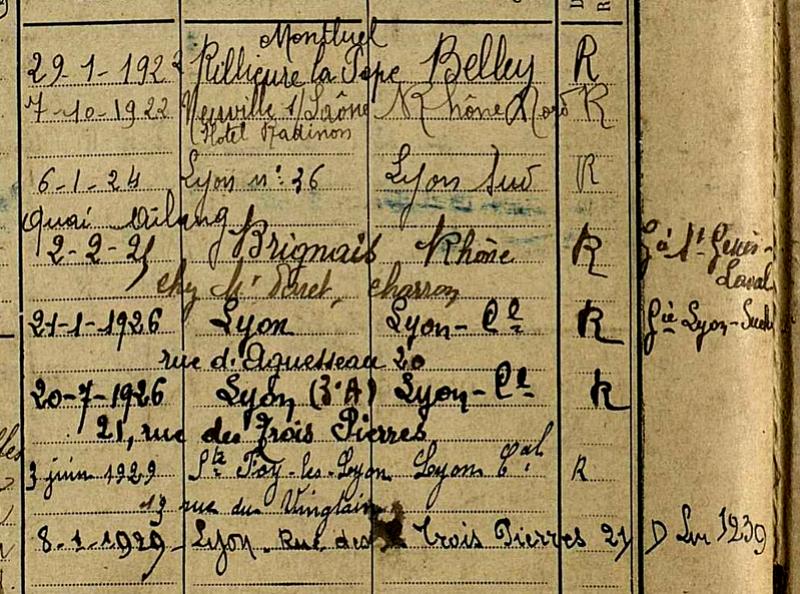 Montluel
29-1-192 Rillieux la Pape Belley R
7-10-1922 Neuville s/Saône Rhône Nord R
Hotel
6-1-24 Lyon n° 36 Lyon Sud R
quai
2-2-25 Brignais Rhône R Gie St Genis-
Laval
chez Mr charron
21-1-1926 Lyon Lyon-Cal R Gie Lyon-Sud
rue d'Aguesseau 20
20-7-1926 Lyon (3e A) Lyon-Cal R
21, rue des Trois Pierres
3 juin 1929 Ste Foy-les-Lyon Lyon Cal R
13 rue du
8-1-1929 Lyon Rue des Trois Pierres 21 D 1239